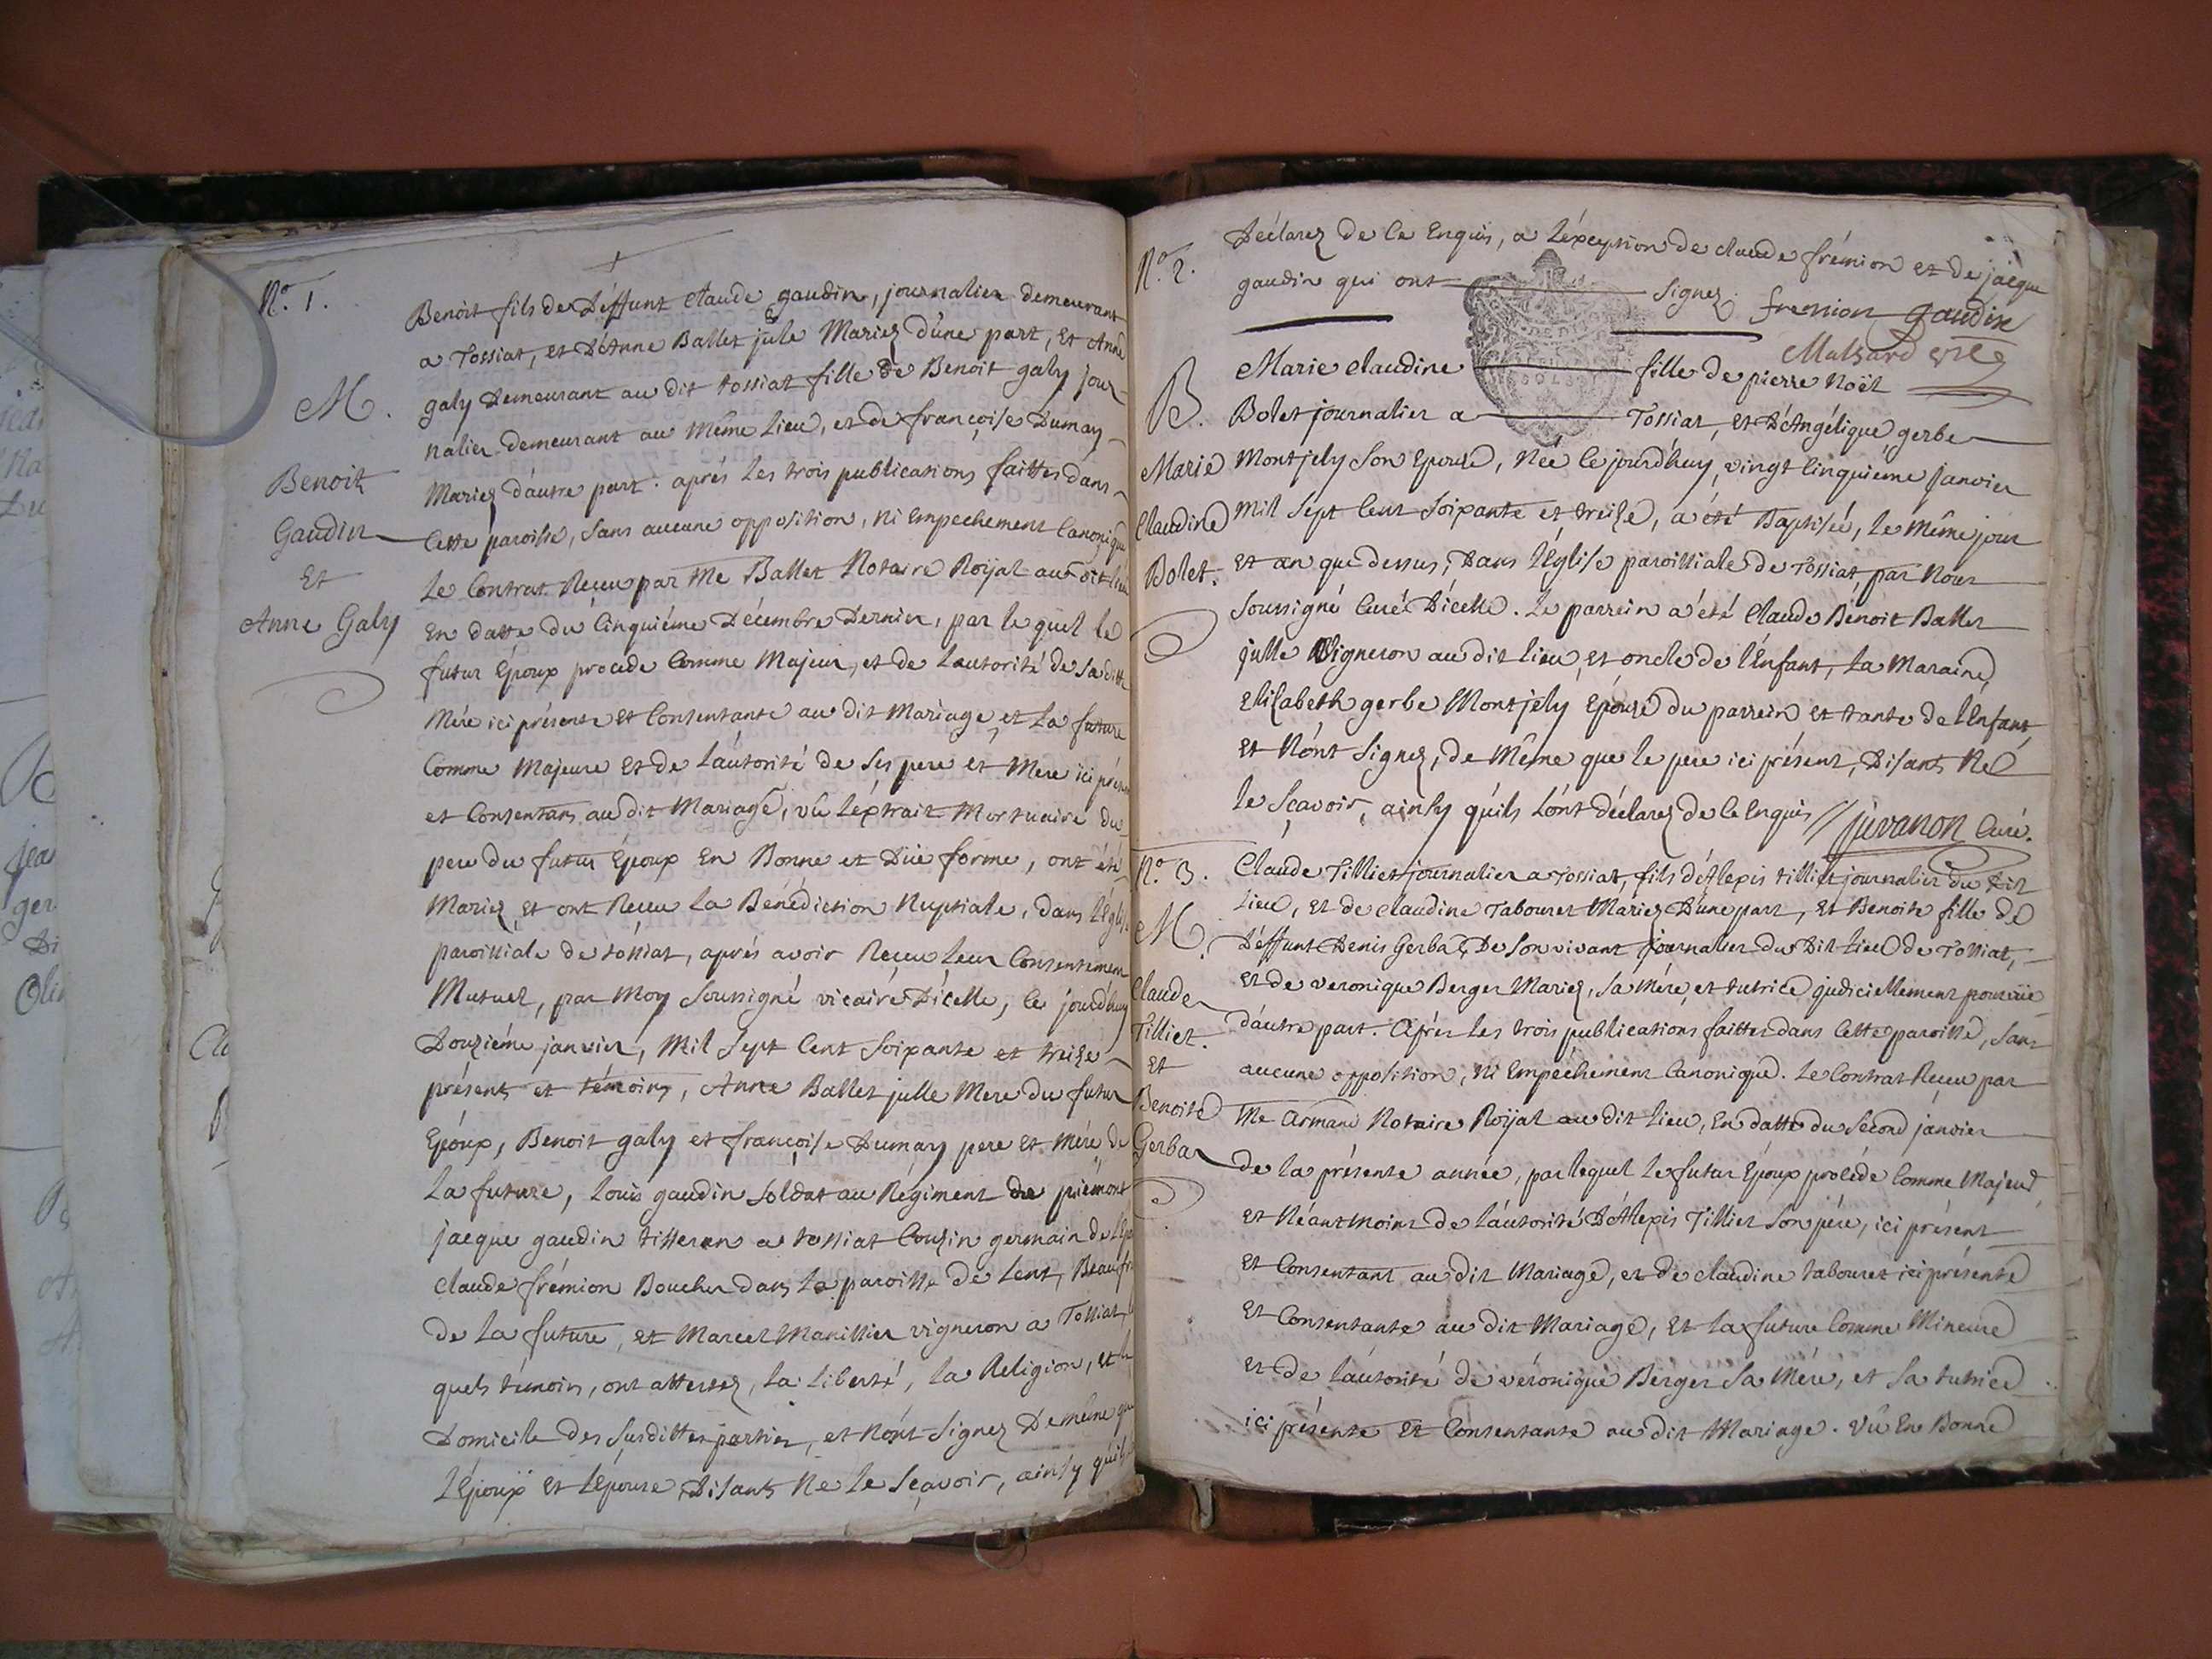 N.o 1.
M.
Benoit
Gaudin
Et
Anne Galy
Benoit fils de Déffunt Claude gaudin, journalier demeurant
a Tossiat, et D'Anne Ballet jule Mariez d'une part, Et Anne
galy Demeurant au dit tossiat fille de Benoit galy jour-
nalier demeurant au même lieu, et de françoise Dumay
Mariez d'autre part. aprés les trois publications faittes dans
Cette paroisse, sans aucune opposition, ni Empechement Canonique
Le Contrat Reçeu par Me Ballet Notaire Roÿal au dit lieu
En datte du Cinquiéme Décembre Dernier, par le quel le
futur Epoux procede Comme Majeur, et de L'autorité de Sa ditte
Mére ici présente et Consentante au dit Mariage et La future
Comme Majeure et de L'autorité de Ses pere et Mere ici présen
et Consentans au dit Mariage, vû L'éxtrait Mortuaire du
pere du futur Epoux En Bonne et Düe forme, ont été
Mariez et ont Reçeu La Bénédiction Nuptiale, dans L'Eglise
paroissiale de tossiat, aprés avoir Reçeu Leur Consentement
Mutuel, par Moy Soussigné vicaire D'icelle, ce jourd'huy
Douziéme janvier, Mil Sept Cent Soixante et treize
présents et témoins, Anne Ballet julle Mere du futur
Epoux, Benoit galy et françoise Dumay pere et Mére de
La future, Louis gaudin Soldat au Régiment de piémont
jacque gaudin tisseran a tossiat Couzin germain de L'Ep
Claude frémion Boucher dans La paroisse de Lent, Beaufr
de La future, et Marcel Manissier vigneron a Tossiat, l
quels témoins, ont attestez, la Liberté, la Religion, et le
Domicile des Susdittes parties, et N'ont Signez De même que
L'Epoux et L'épouse, Disants Ne Le Sçavoir, ainsy qu'ils
N.o 2.
B.
Marie
Claudine
Bolet.
Déclarez de Ce Enquis, a L'éxception de claude frémion et de jacque
gaudin qui ont Signez. fremion gaudin
Marie Claudine fille de pierre Noël
Bolet journalier a Tossiat, et D'Angélique gerbe
Montjely Son Epouse, Née le jourd'huy, vingt Cinquiéme janvier
Mil Sept Cent Soixante et treize, a été Baptisée, Le Même jour
et an que dessus, Dans L'Eglise paroissiale de Tossiat, par Nous
Soussigné Curé D'icelle. Le parrein a été Claude Benoit Ballet
julle Vigneron au dit lieu et oncle de l'Enfant, La Maraine
Elizabeth gerbe Montjely Epouse du parrein et tante de L'Enfant
et N'ont Signez, de Même que le pere ici présent, Disants Ne
le Sçavoir, ainsy qu'ils L'ont déclarez de Ce Enquis // juvanon Curé.
N.o 3.
M.
Claude
Tilliet.
Et
Benoite
Gerba
Claude Tilliet journalier a Tossiat, fils d'Alexis tilliet journalier du dit
Lieu, et de Claudine Tabouret Mariez D'une part, et Benoite fille de
Déffunt Denis Gerba, De Son vivant journalier du Dit Lieu de Tossiat,
et de veronique Berger Mariez, Sa Mére et tutrice judiciellement pourvüe
d'autre part. Aprés les trois publications faittes dans Cette paroisse, Sans
aucune opposition, Ni Empéchement Canonique. Le Contrat Reçeu par
Me Armand Notaire Roÿal au dit lieu, En datte du Second janvier
de la présente année, par lequel Le futur Epoux procéde Comme Majeur
et Néantmoins de L'autorité D'Alexis Tilliet Son pére, ici présent
et Consentant au dit Mariage, et de Claudine tabouret ici présente
et Consentante au dit Mariage, et La future Comme Mineure
et de L'autorité de véronique Berger Sa Mére, et Sa tutrice
ici présente et Consentante au dit Mariage. Vû En Bonne